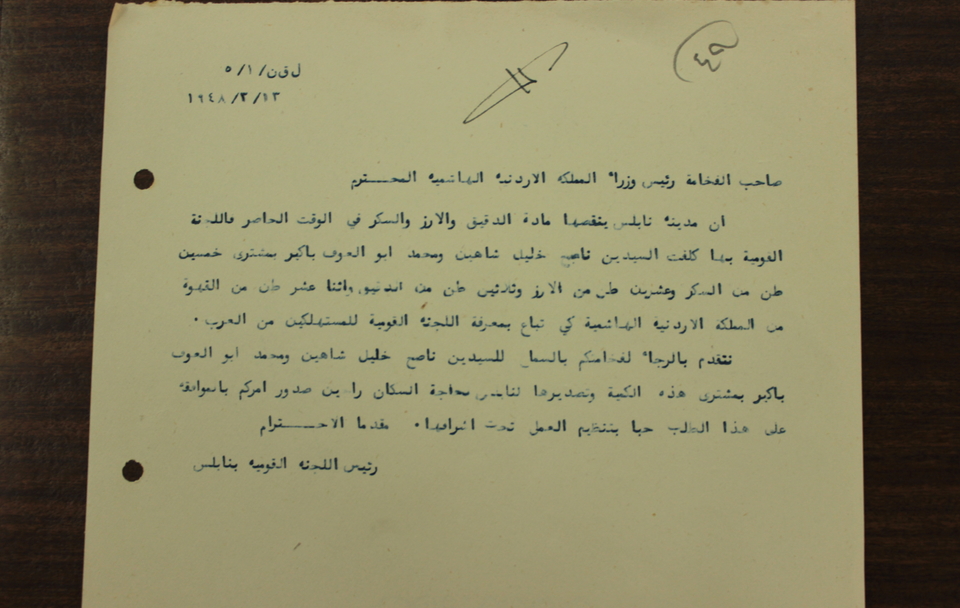 ٤٩
ل ق ن/ ١/ ٥
١٣/ ٢/ ١٩٤٨
صاحب الفخامة رئيس وزراء المملكه الاردنيه الهاشميه المحـــترم
ان مدينه نابلس ينقصها مادة الدقيق والارز والسكر في الوقت الحاضر فاللجنة
القومية بها كلفت السيدين ناصح خليل شاهين ومحمد ابو العوف باكير بمشترى خمسين
طن من السكر وعشرين طن من الارز وثلاثين طن من الدقيق واثنا عشر طن من القهوة
من المملكة الاردنية الهاشمية كي تباع بمعرفة اللجنه القومية للمستهلكين من العرب .
نتقدم بالرجاء لفخامتكم بالسماح للسيدين ناصح خليل شاهين ومحمد ابو العوف
باكير بمشترى هذه الكمية وتصديرها لنابلس لحاجة السكان راجين صدور امركم بالموافقه
على هذا الطلب حبا بتنظيم العمل تحت اشرافها . مقدما الاحـــترام
رئيس اللجنه القوميه بنابلس